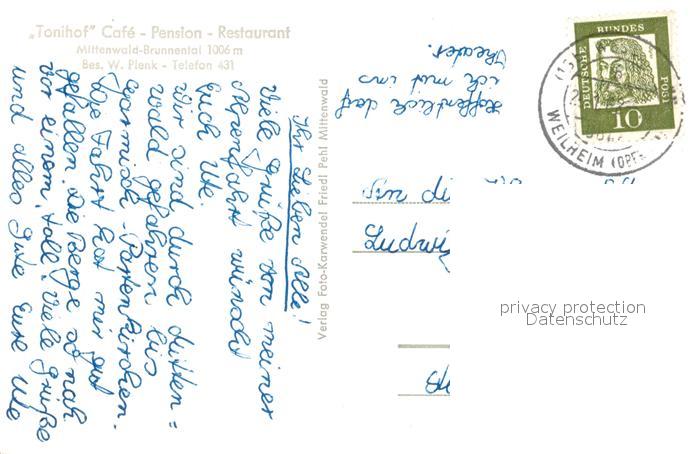 „Tonihof" Café - Pension - Restaurant
Mittenwald-Brunnental 1006 m
Bes. W. Plenk - Telefon 431
Ihr Lieben Alle!
Viele Grüße von meiner
Alpenfahrt wünscht
Euch Ute.
Wir sind durch Mitten=
wald gefahren bis
Garmisch-Partenkirchen.
Die Fahrt hat mir gut
gefallen. Die Berge so nah
vor einem, toll! Viele Grüße
und alles Gute Eure Ute
Hoffentlich darf
ich mit ins
Theater.
Verlag Foto-Karwendel Friedl Pehl Mittenwald
DEUTSCHE BUNDESPOST
10
WEILHEIM (OBB
Ludwi
privacy protection
Datenschutz